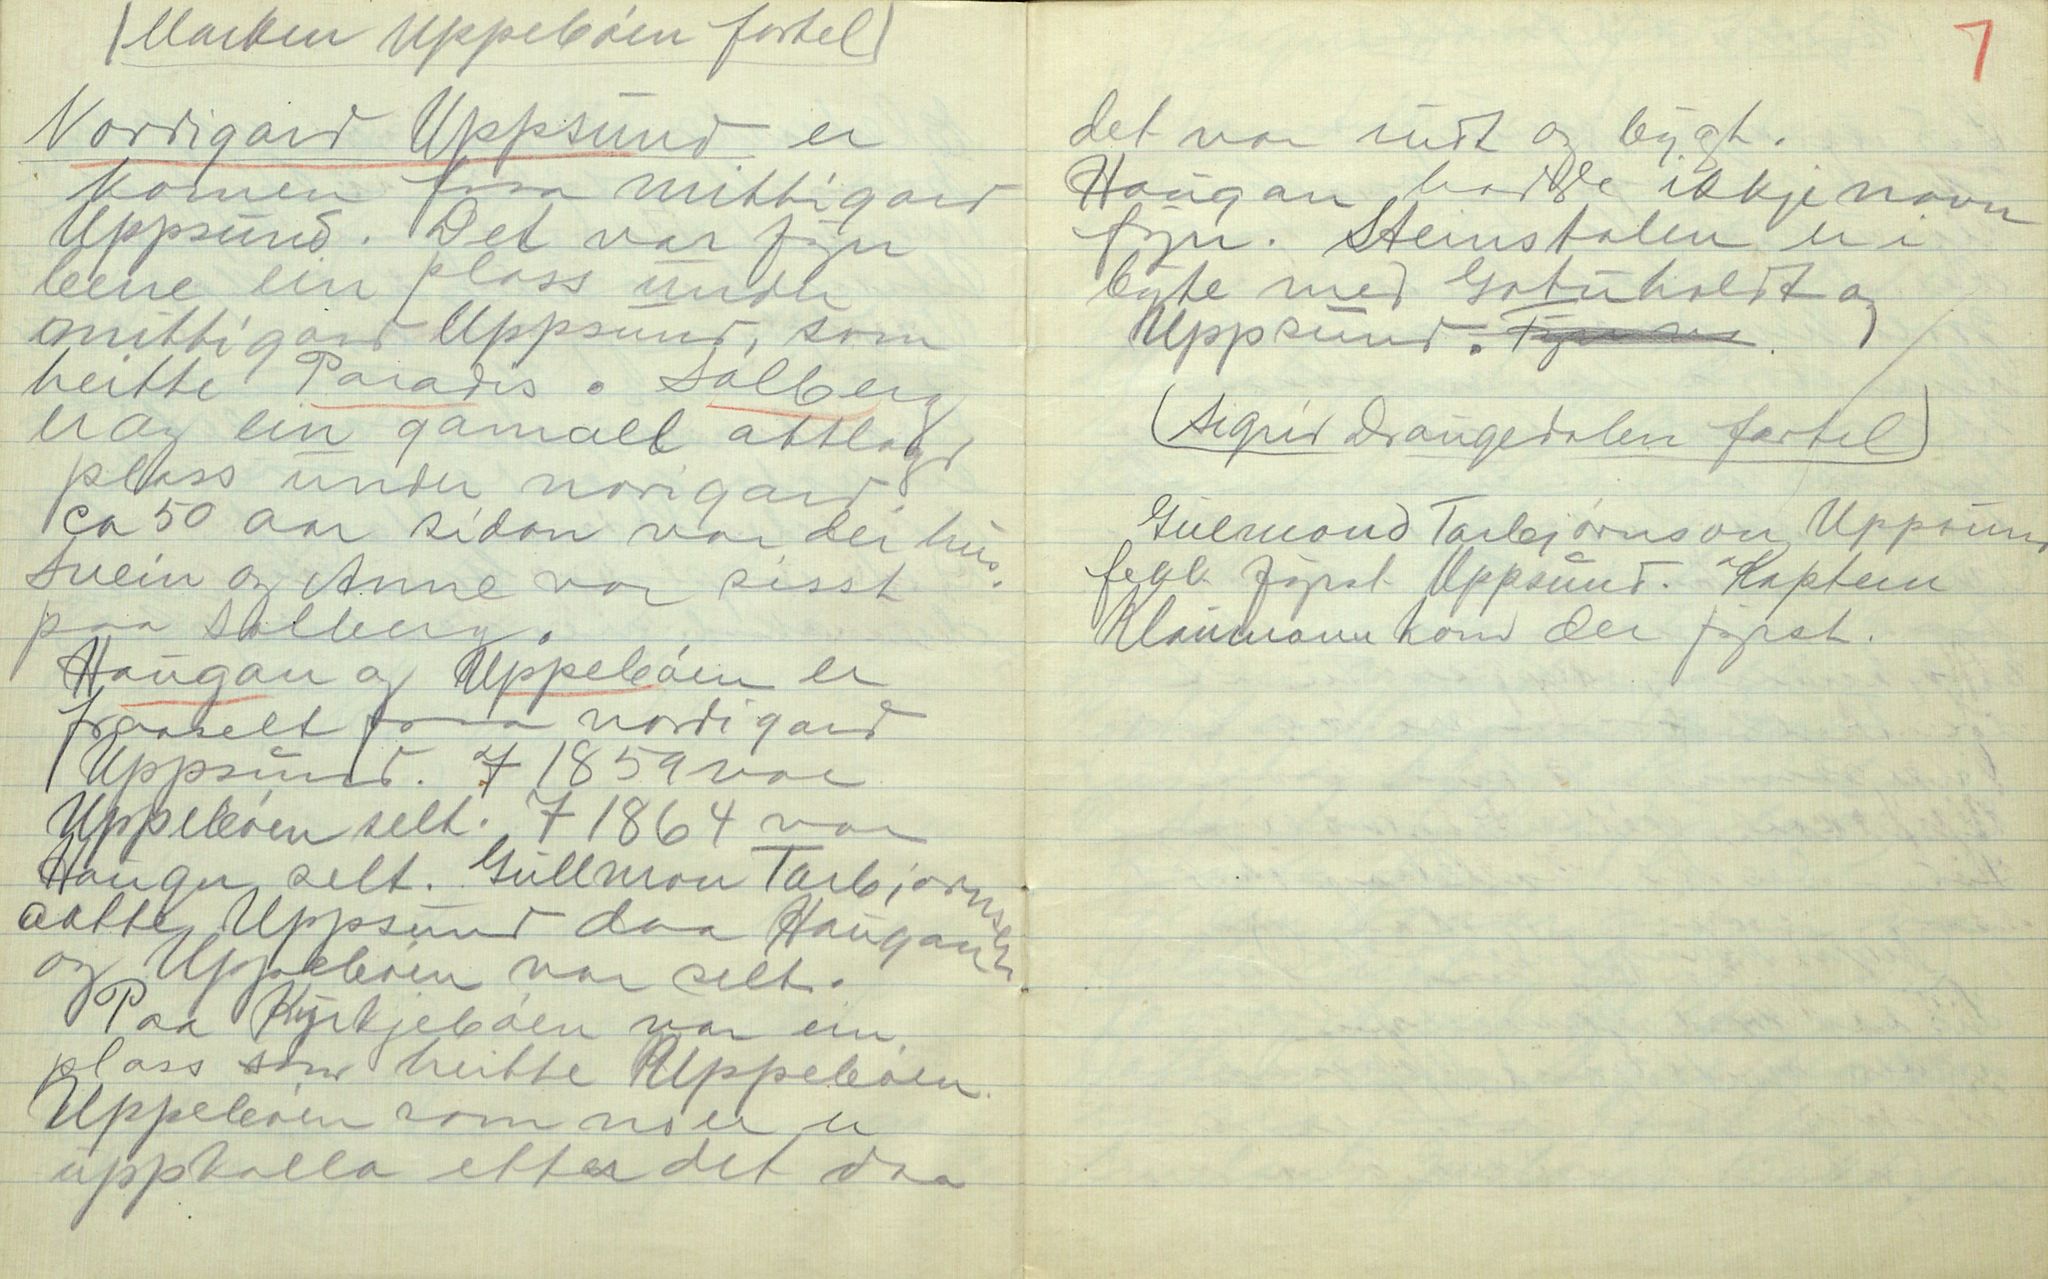 (Marken Uppebøen fortel)
Nordigard Uppsund er
komen fraa mittigard
Uppsund. Det var fyrr
bene ein plass under
mittigard Uppsund, som
heitte Paradis. Solberg
er og ein gamall attlagd
plass under norigard
Ca 50 aar sidan var dei hus.
Svein og Anne var sisst
paa Solberg.
Haugan og Uppebøen er
fraaselt fraa nordigard
Uppsund. I 1859 var
Uppebøen selt. I 1864 var
Haugen selt. Gullmon Tarbjørnsen
aatte Uppsund daa Haugan
og Uppebøen var selt.
Paa Kyrkjebøen var ein
plass som heitte Uppebøen.
Uppebøen som no er er
uppkalla etter det daa
7
det var rudt og bygt.
Haugan hadde ikkje navn
fyrr. Steinstolen er i
byte med Gotuholdt og
Uppsund.
(Sigrid Draugedalen fortel)
Gullmond Tarbjørnson Uppsund
fekk fyrst Uppsund. Kaptein
Klaumann kom der fyrst.